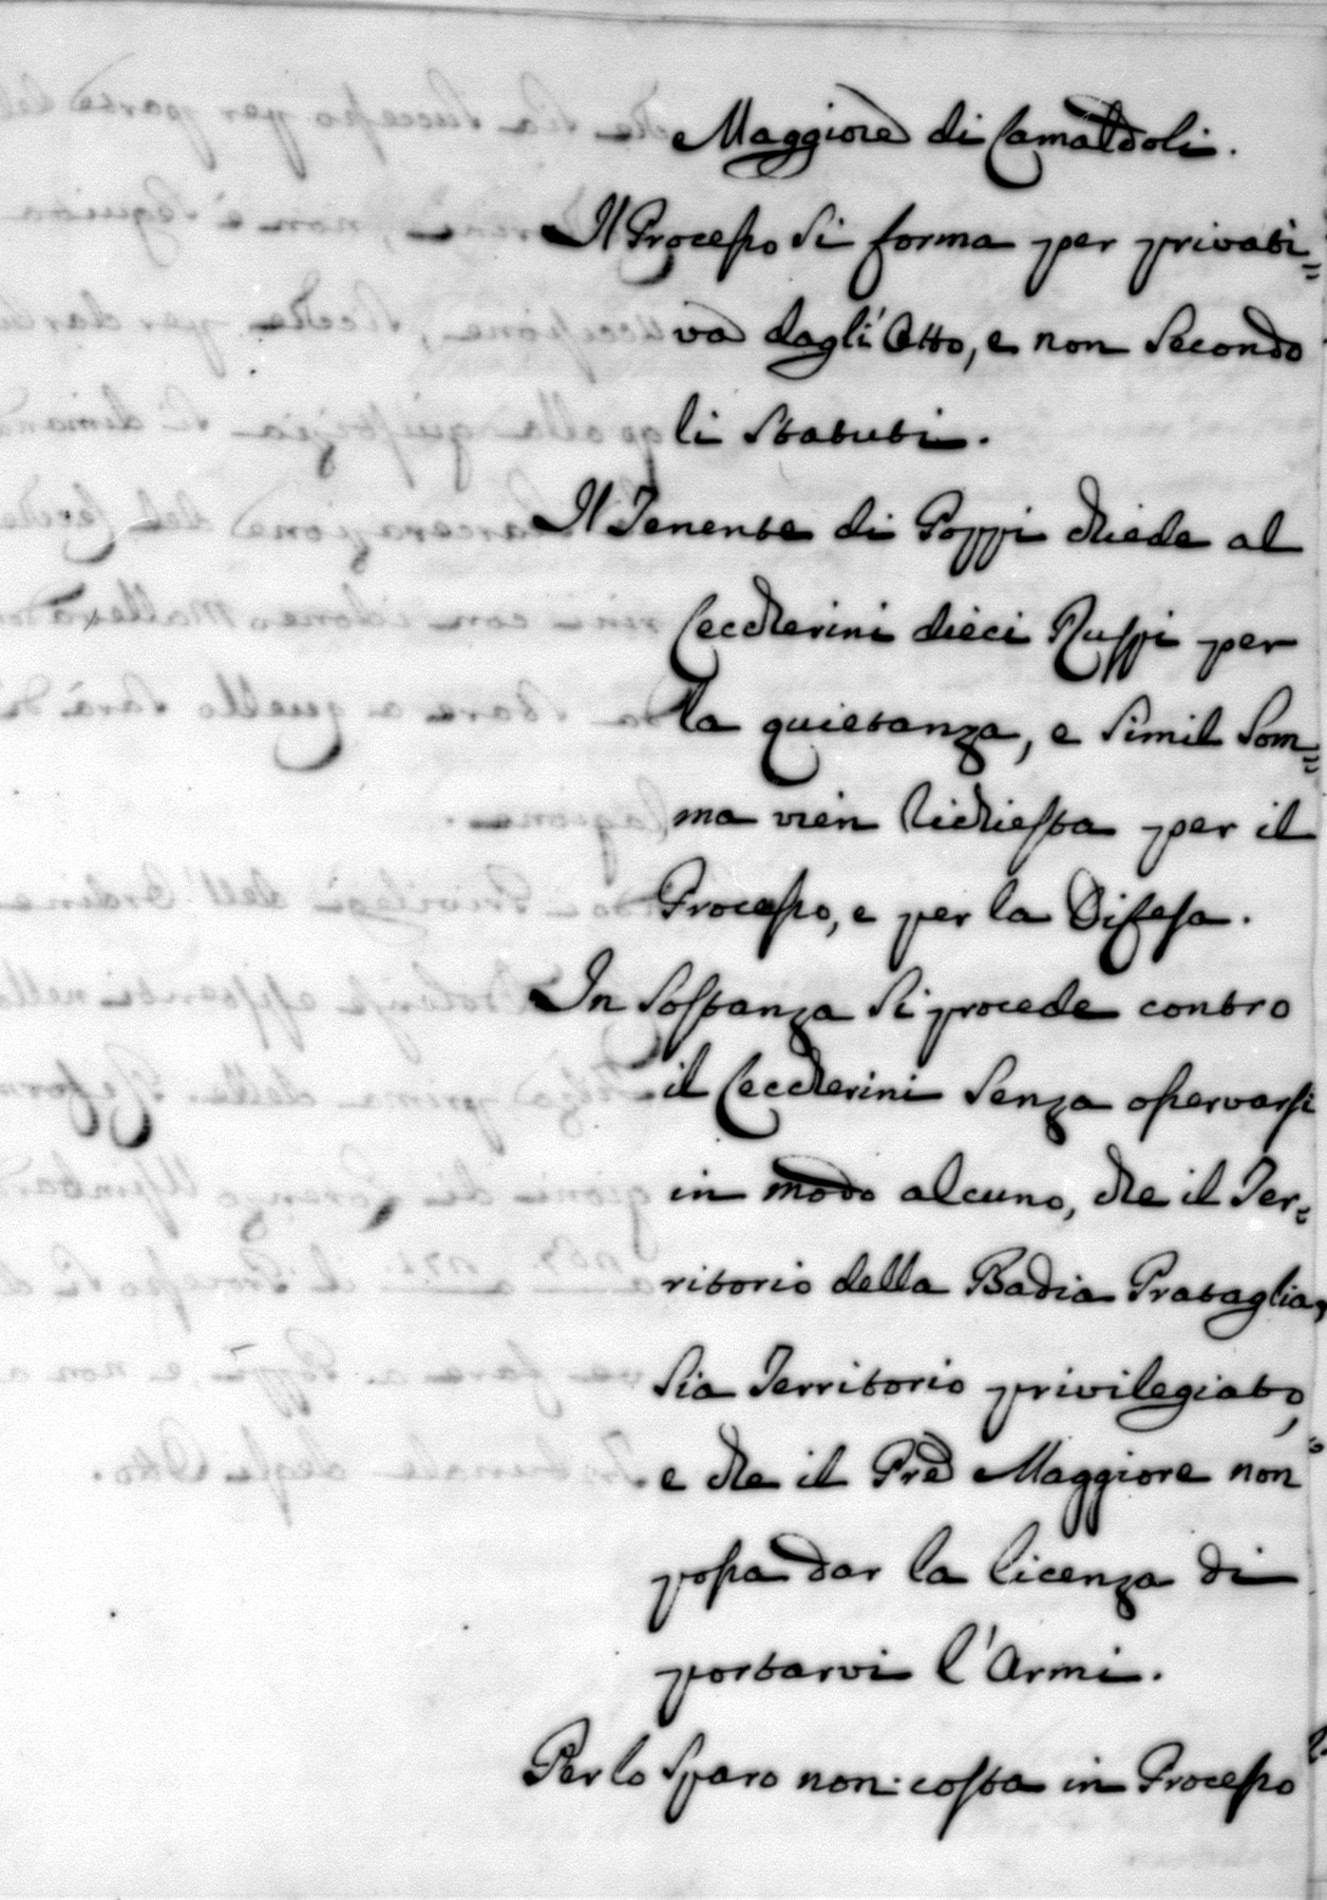 Maggiore di Camaldoli.
Il Processo si forma per privati=
va dagl'Otto, e non secondo
li Statuti.
Il Tenente di Poppi chiede al
Ceccherini dieci Ruspi per
la quietanza, e simil som=
ma vien richiesta per il
Processo, e per la Difesa.
In sostanza si procede contro
il Ceccherini senza osservarsi
in modo alcuno, che il Ter=
ritorio della Badia Prataglia,
sia Territorio privilegiato,
e che il Pre Maggiore non
possa dar la licenza di
portarvi l'Armi.
Per lo sparo non costa in Processo